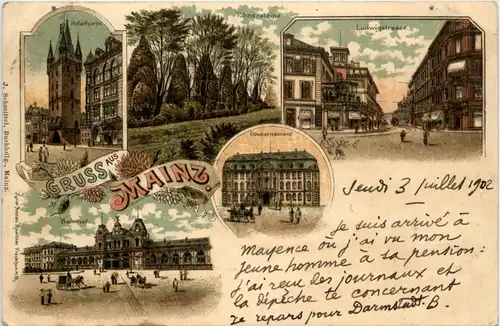 Holzthurm
Römersteine
Ludwigstrasse
GRUSS AUS
MAINZ.
Gouvernement
Bahnhof
J. Schmittel, Buchhdlg., Mainz.
Jeudi 3 juillet 1902
je suis arrivé à
Mayence où j'ai vu mon
jeune homme à sa pension:
j'ai reçu les journaux et
la dépêche te concernant
Je repars pour Darmstadt. B.